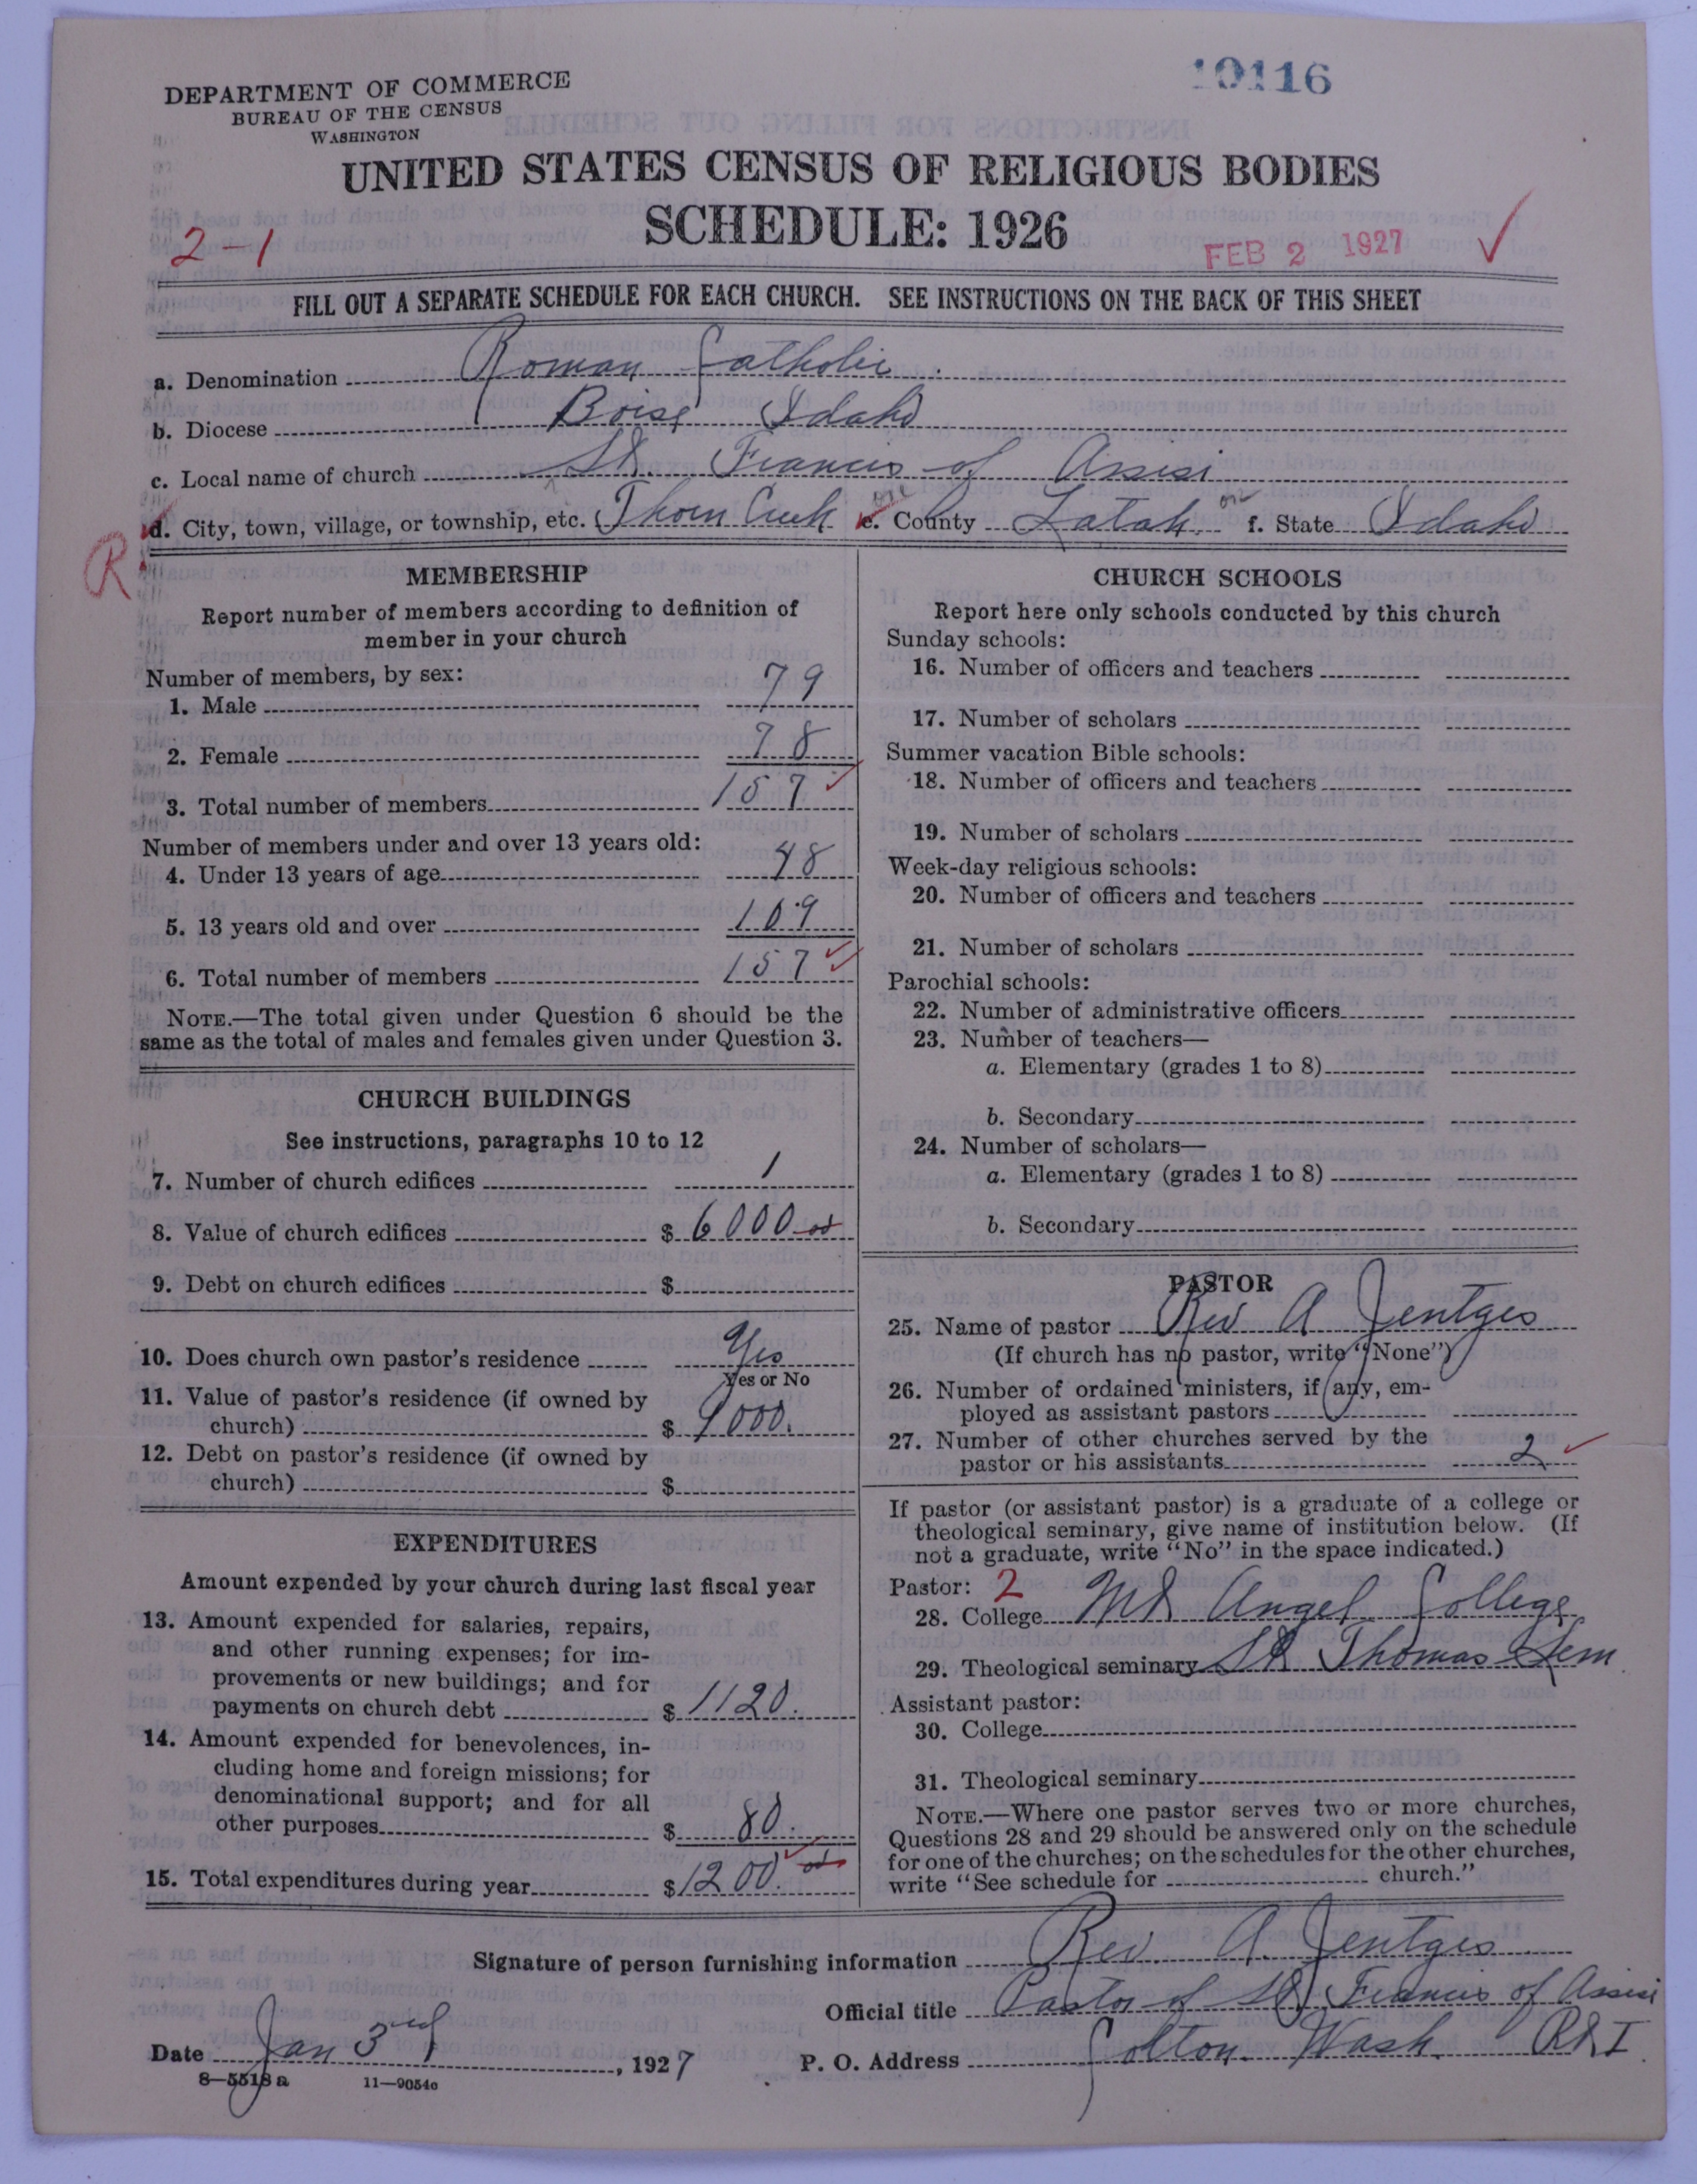 10116
DEPARTMENT OF COMMERCE
BUREAU OF THE CENSUS
WASHINGTON
UNITED STATES CENSUS OF RELIGIOUS BODIES
SCHEDULE: 1926
2-1
FEB 2 1927 ✓
FILL OUT A SEPARATE SCHEDULE FOR EACH CHURCH. SEE INSTRUCTIONS ON THE BACK OF THIS SHEET
a. Denomination Roman Catholic.
b. Diocese Boise Idaho
c. Local name of church St. Francis of Assisi
d. City, town, village, or township, etc. Thorn Creek e. County Latah f. State Idaho
R
MEMBERSHIP
Report number of members according to definition of
member in your church
Number of members, by sex:
1. Male 79
2. Female 78
3. Total number of members 157
Number of members under and over 13 years old:
4. Under 13 years of age 48
5. 13 years old and over 109
6. Total number of members 157
NOTE.—The total given under Question 6 should be the
same as the total of males and females given under Question 3.
CHURCH BUILDINGS
See instructions, paragraphs 10 to 12
7. Number of church edifices 1
8. Value of church edifices $ 6000
9. Debt on church edifices $
10. Does church own pastor's residence Yes
Yes or No
11. Value of pastor's residence (if owned by
church) $ 1000.
12. Debt on pastor's residence (if owned by
church) $
EXPENDITURES
Amount expended by your church during last fiscal year
13. Amount expended for salaries, repairs,
and other running expenses; for im-
provements or new buildings; and for
payments on church debt $ 1120.
14. Amount expended for benevolences, in-
cluding home and foreign missions; for
denominational support; and for all
other purposes $ 80.
15. Total expenditures during year $ 1200.
CHURCH SCHOOLS
Report here only schools conducted by this church
Sunday schools:
16. Number of officers and teachers
17. Number of scholars
Summer vacation Bible schools:
18. Number of officers and teachers
19. Number of scholars
Week-day religious schools:
20. Number of officers and teachers
21. Number of scholars
Parochial schools:
22. Number of administrative officers
23. Number of teachers—
a. Elementary (grades 1 to 8)
b. Secondary
24. Number of scholars—
a. Elementary (grades 1 to 8)
b. Secondary
PASTOR
25. Name of pastor Rev A Jentges
(If church has no pastor, write "None")
26. Number of ordained ministers, if any, em-
ployed as assistant pastors
27. Number of other churches served by the
pastor or his assistants 2
If pastor (or assistant pastor) is a graduate of a college or
theological seminary, give name of institution below. (If
not a graduate, write "No" in the space indicated.)
Pastor: 2
28. College Mt Angel College
29. Theological seminary St Thomas Sem
Assistant pastor:
30. College
31. Theological seminary
NOTE.—Where one pastor serves two or more churches,
Questions 28 and 29 should be answered only on the schedule
for one of the churches; on the schedules for the other churches,
write "See schedule for church."
Signature of person furnishing information Rev A. Jentges
Official title Pastor of St Francis of Assisi
Date Jan 3rd, 1927 P. O. Address Colton Wash. R&I
8—5518 a 11—9054c